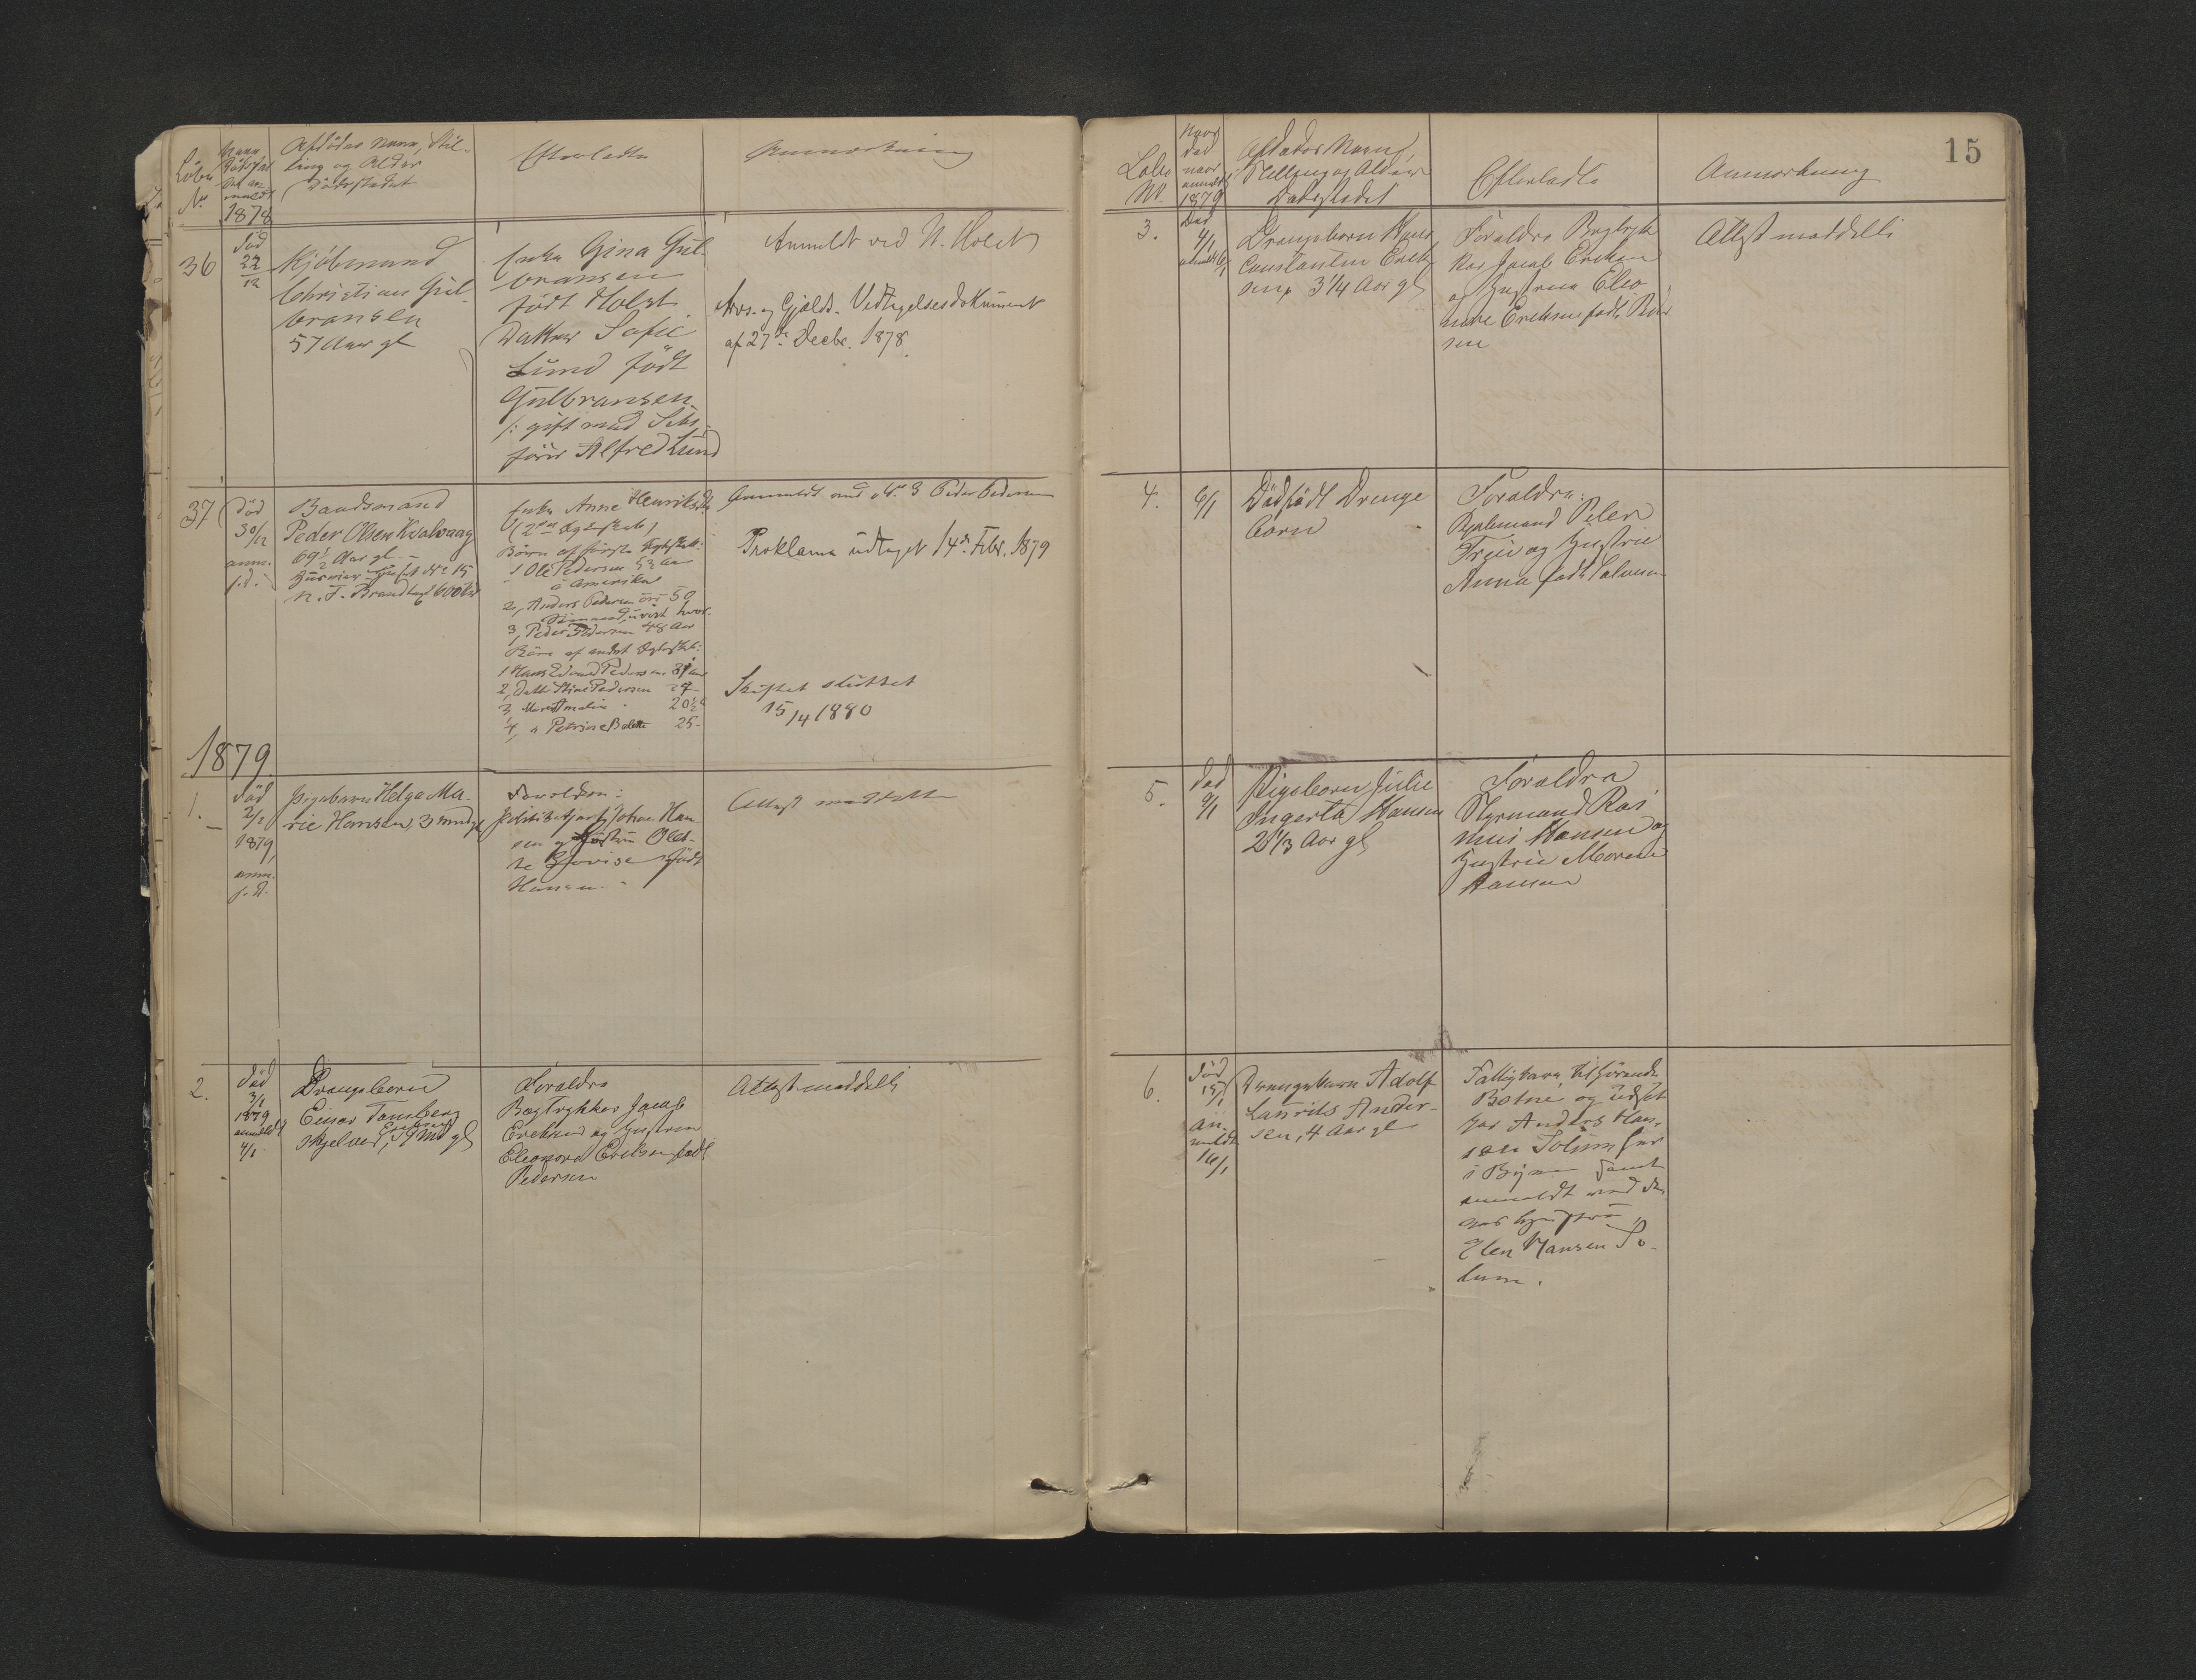 Löbe
No
Naar
Dödsfal
det an
meldt
1878
Afdödes Navn, Stil-
ling og Alder
Dödsstedet
Efterladte
Anmærkning
36
död
22
12
Kjöbmand
Christian Gul-
bransen
57 Aar gl
Enke Gina Gul-
bransen
födt Holst
Datter Sofie
Lund födt
Gulbransen
/: gift med
fører Alfred Lund
Anmeldt ved N. Holst
Arvs- og Gjælds- Vedtagelsesdokument
af 27de Decbr. 1878.
37
Död
30/12
anm.
s. d.
Baadsmand
Peder Olsen Kvalvaag
69½ Aar gl.
No 15
N. F. Brandtaxt 600
Enke Anne Henriksdt
(2det Ægteskab)
Börn af förste Ægteskab:
1 Ole Pedersen 52 Aar
i Amerika
2, Anders Pedersen 50
Sömand, uvist hvor
3, Peder Pedersen 48 Aar
Börn af andet Ægteskab:
1 Hans Edvard Pedersen 31 Aar
2, Datter Stine Pedersen 27 -
3, Maren Amalie 20½
4, " Petrine Bolette 25 -
Anmeldt ved No 3 Peder Pedersen
Proklama udtaget 14de Febr. 1879
Skiftet sluttet
15/4 1880
1879
1.
död
2/1
1879,
anm.
s. d.
Pigebarn Helga Ma-
rie Hansen, 3 mdgl
Forældre:
Politibetjent Johan Han
sen og Hustru Oles-
se Lovise födt
Hansen.
Attest meddelt
2.
död
3/1
1879
anmeldt
4/1
Drengebarn
Einar Tamberg
Eriksen
Skjelver, Md gl
Forældre
Bogtrykker Jacob
Eriksen og Hustru
Eleonora Eriksen födt
Pedersen
Attest meddelt
15
Löbe
No.
Naar
död
naar
anmeldt
1879
Afdödes Navn,
Stilling og Alder
Dödsstedet
Efterladte
Anmærkning
3.
Död
4/1
anmeldt 6/1
Drengebarn Hans
Constantin Erik
sen, 3 1/4 Aar gl
Forældre Bogtryk
ker Jacob Eriksen
og Hustru Eleo
nore Eriksen födt Peder
sen
Attest meddelt
4.
6/1
Dödfödt Drenge
barn
Forældre:
Styrmand Peter
og Hustru
Anna födt Salvesen
5.
död
9/1
Pigebarn Julie
Ingerta Hansen
2 1/3 Aar gl
Forældre
Styrmand Ras
mus Hansen og
Hustru Maren
Hansen
6.
Död
15/1
an-
meldt
16/1
Drengebarn Adolf
Laurits Ander-
sen, 4 Aar gl
Fattigbarn, tilhörende
Botne og udsat
hos Anders Han-
sen Solum her
i Byen samt
anmeldt ved den-
nes Hustru
Elen Hansen So-
lum.